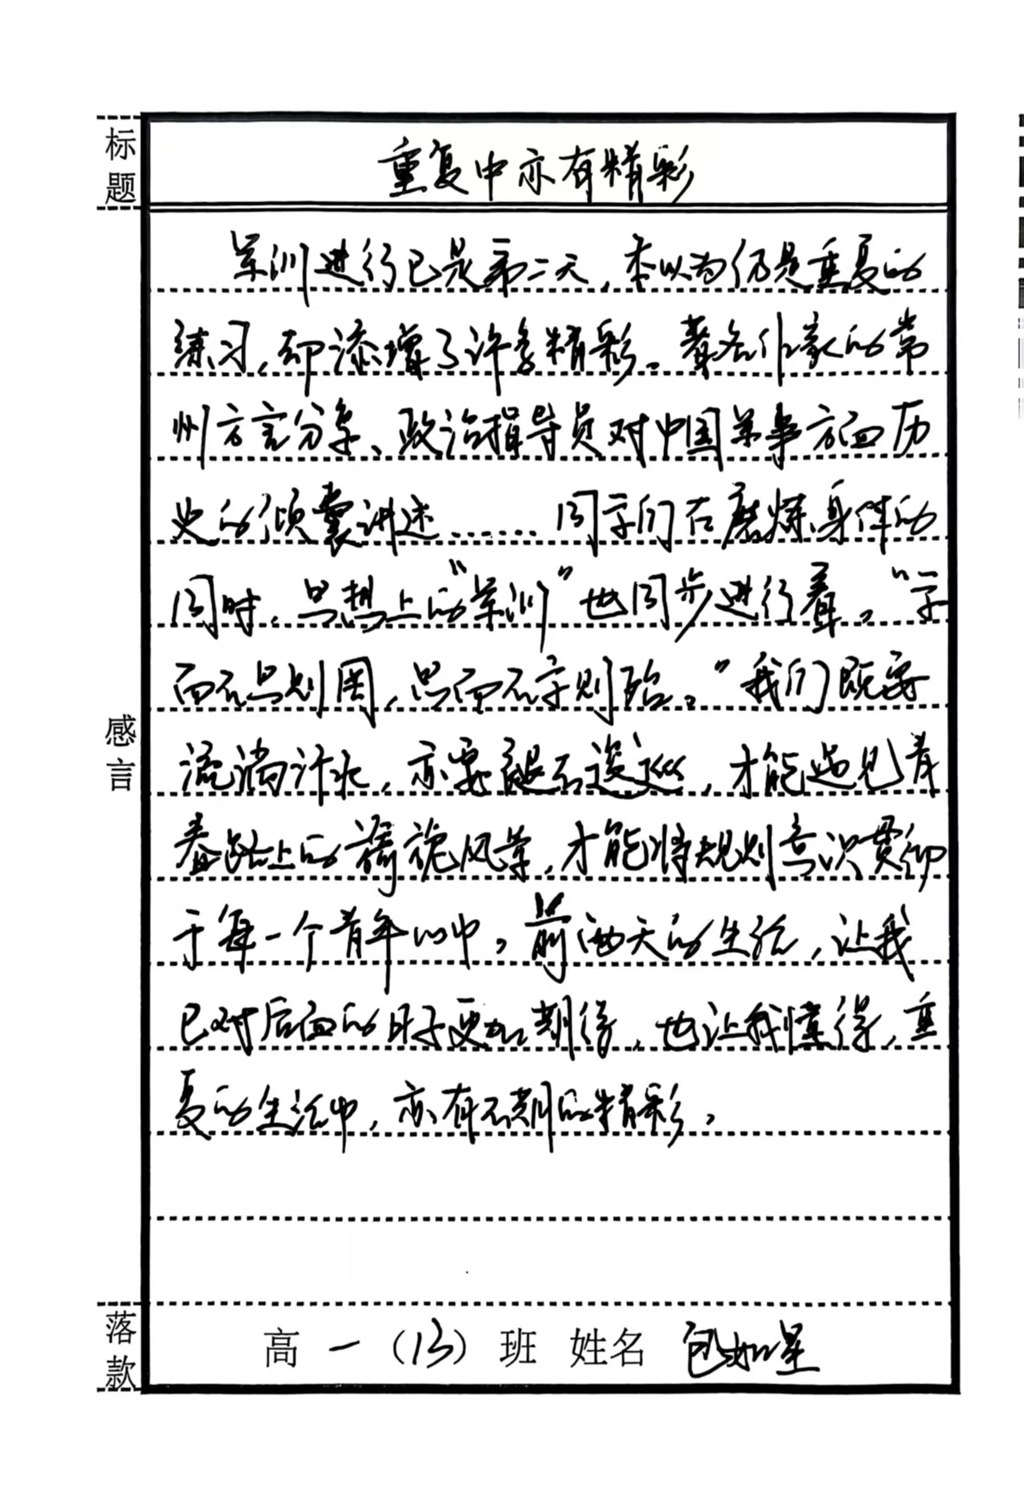 标题
重复中亦有精彩
军训进行已是第二天，本以为仍是重复的
练习，却添增了许多精彩。著名作家的常
州方言分享、政治指导员对中国军事方面历
史的倾囊讲述……同学们在磨炼身体的
同时，思想上的“军训”也同步进行着。“学
而不思则罔，思而不学则殆。”我们既要
流淌汗水，亦要退不逡巡，才能遇见青
春路上的旖旎风景，才能将规则意识贯彻
于每一个青年心中。前两天的生活，让我
已对后面的日子更加期待，也让我懂得，重
复的生活中，亦有不期的精彩。
感言
落款
高一（13）班 姓名 包如星